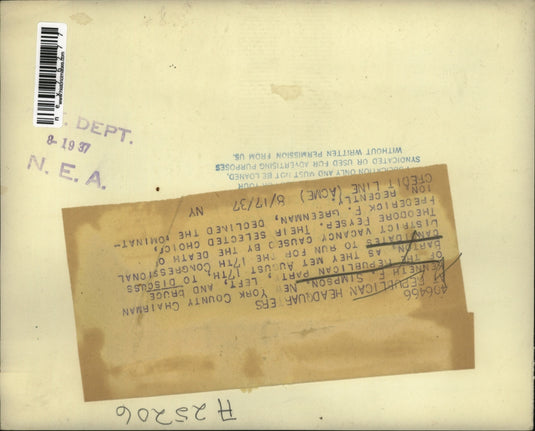 DEPT.
8-19 37
N. E. A.
ICATION ONLY AND MUST NOT BE LOANED,
SYNDICATED OR USED FOR ADVERTISING PURPOSES
WITHOUT WRITTEN PERMISSION FROM US.
406466
REPUBLICAN HEADQUARTERS
KENNETH F. SIMPSON, NEW YORK COUNTY CHAIRMAN
OF THE REPUBLICAN PARTY, LEFT, AND BRUCE
BARTON, AS THEY MET AUGUST 17TH, TO DISCUSS
CANDIDATES TO RUN FOR THE 17TH CONGRESSIONAL
DISTRICT VACANCY CAUSED BY THE DEATH OF
THEODORE PEYSER. THEIR SELECTED CHOICE,
FREDERICK F. GREENMAN, DECLINED THE NOMINAT-
ION, RECENTLY. NY
CREDIT LINE (ACME) 8/17/37
A25206